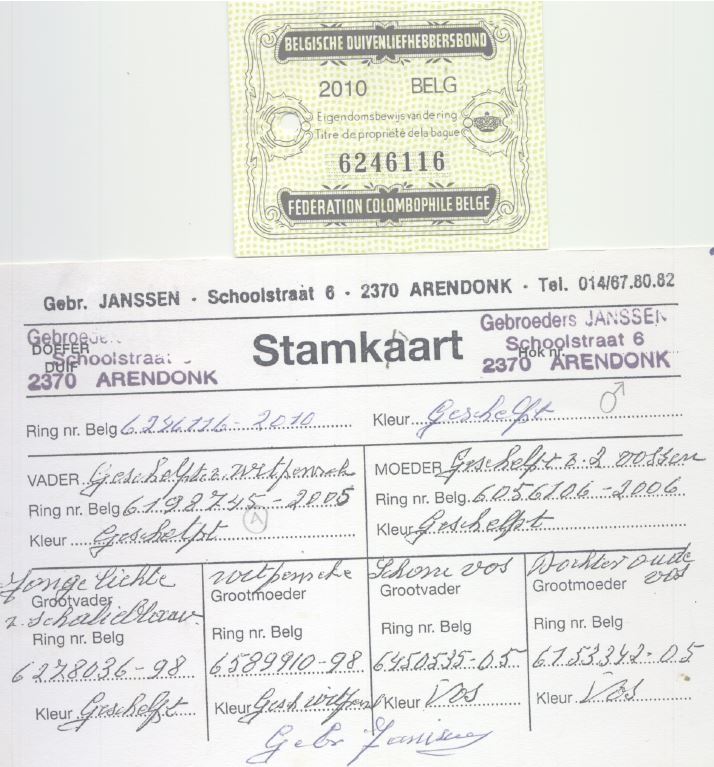 BELGISCHE DUIVENLIEFHEBBERSBOND
2010 BELG
Eigendomsbewijs van de ring
Titre de propriété de la bague
6246116
FÉDÉRATION COLOMBOPHILE BELGE
Gebr. JANSSEN - Schoolstraat 6 - 2370 ARENDONK - Tel. 014/67.80.82
Gebroeders
DOFFER
Schoolstraat
DUIF
2370 ARENDONK
Stamkaart
Gebroeders JANSSEN
Schoolstraat 6
Hok nr.
2370 ARENDONK
♂
Ring nr. Belg 6246116-2010 Kleur Geschelpt
VADER Geschelpt z. witpenneke
Ring nr. Belg 6198745-2005
A
Kleur Geschelpt
MOEDER Geschelpt z. 2 vossen
Ring nr. Belg. 6056106-2006
Kleur Geschelpt
Jonge lichte
Grootvader
z. schalieblauw
Ring nr. Belg
6278036-98
Kleur Geschelpt
witpenneke
Grootmoeder
Ring nr. Belg
6589910-98
Kleur Gesch witpen
Schone vos
Grootvader
Ring nr. Belg
6450535-05
Kleur Vos
Dochter oude vos
Grootmoeder
Ring nr. Belg
6753342-05
Kleur Vos
Gebr Janssen